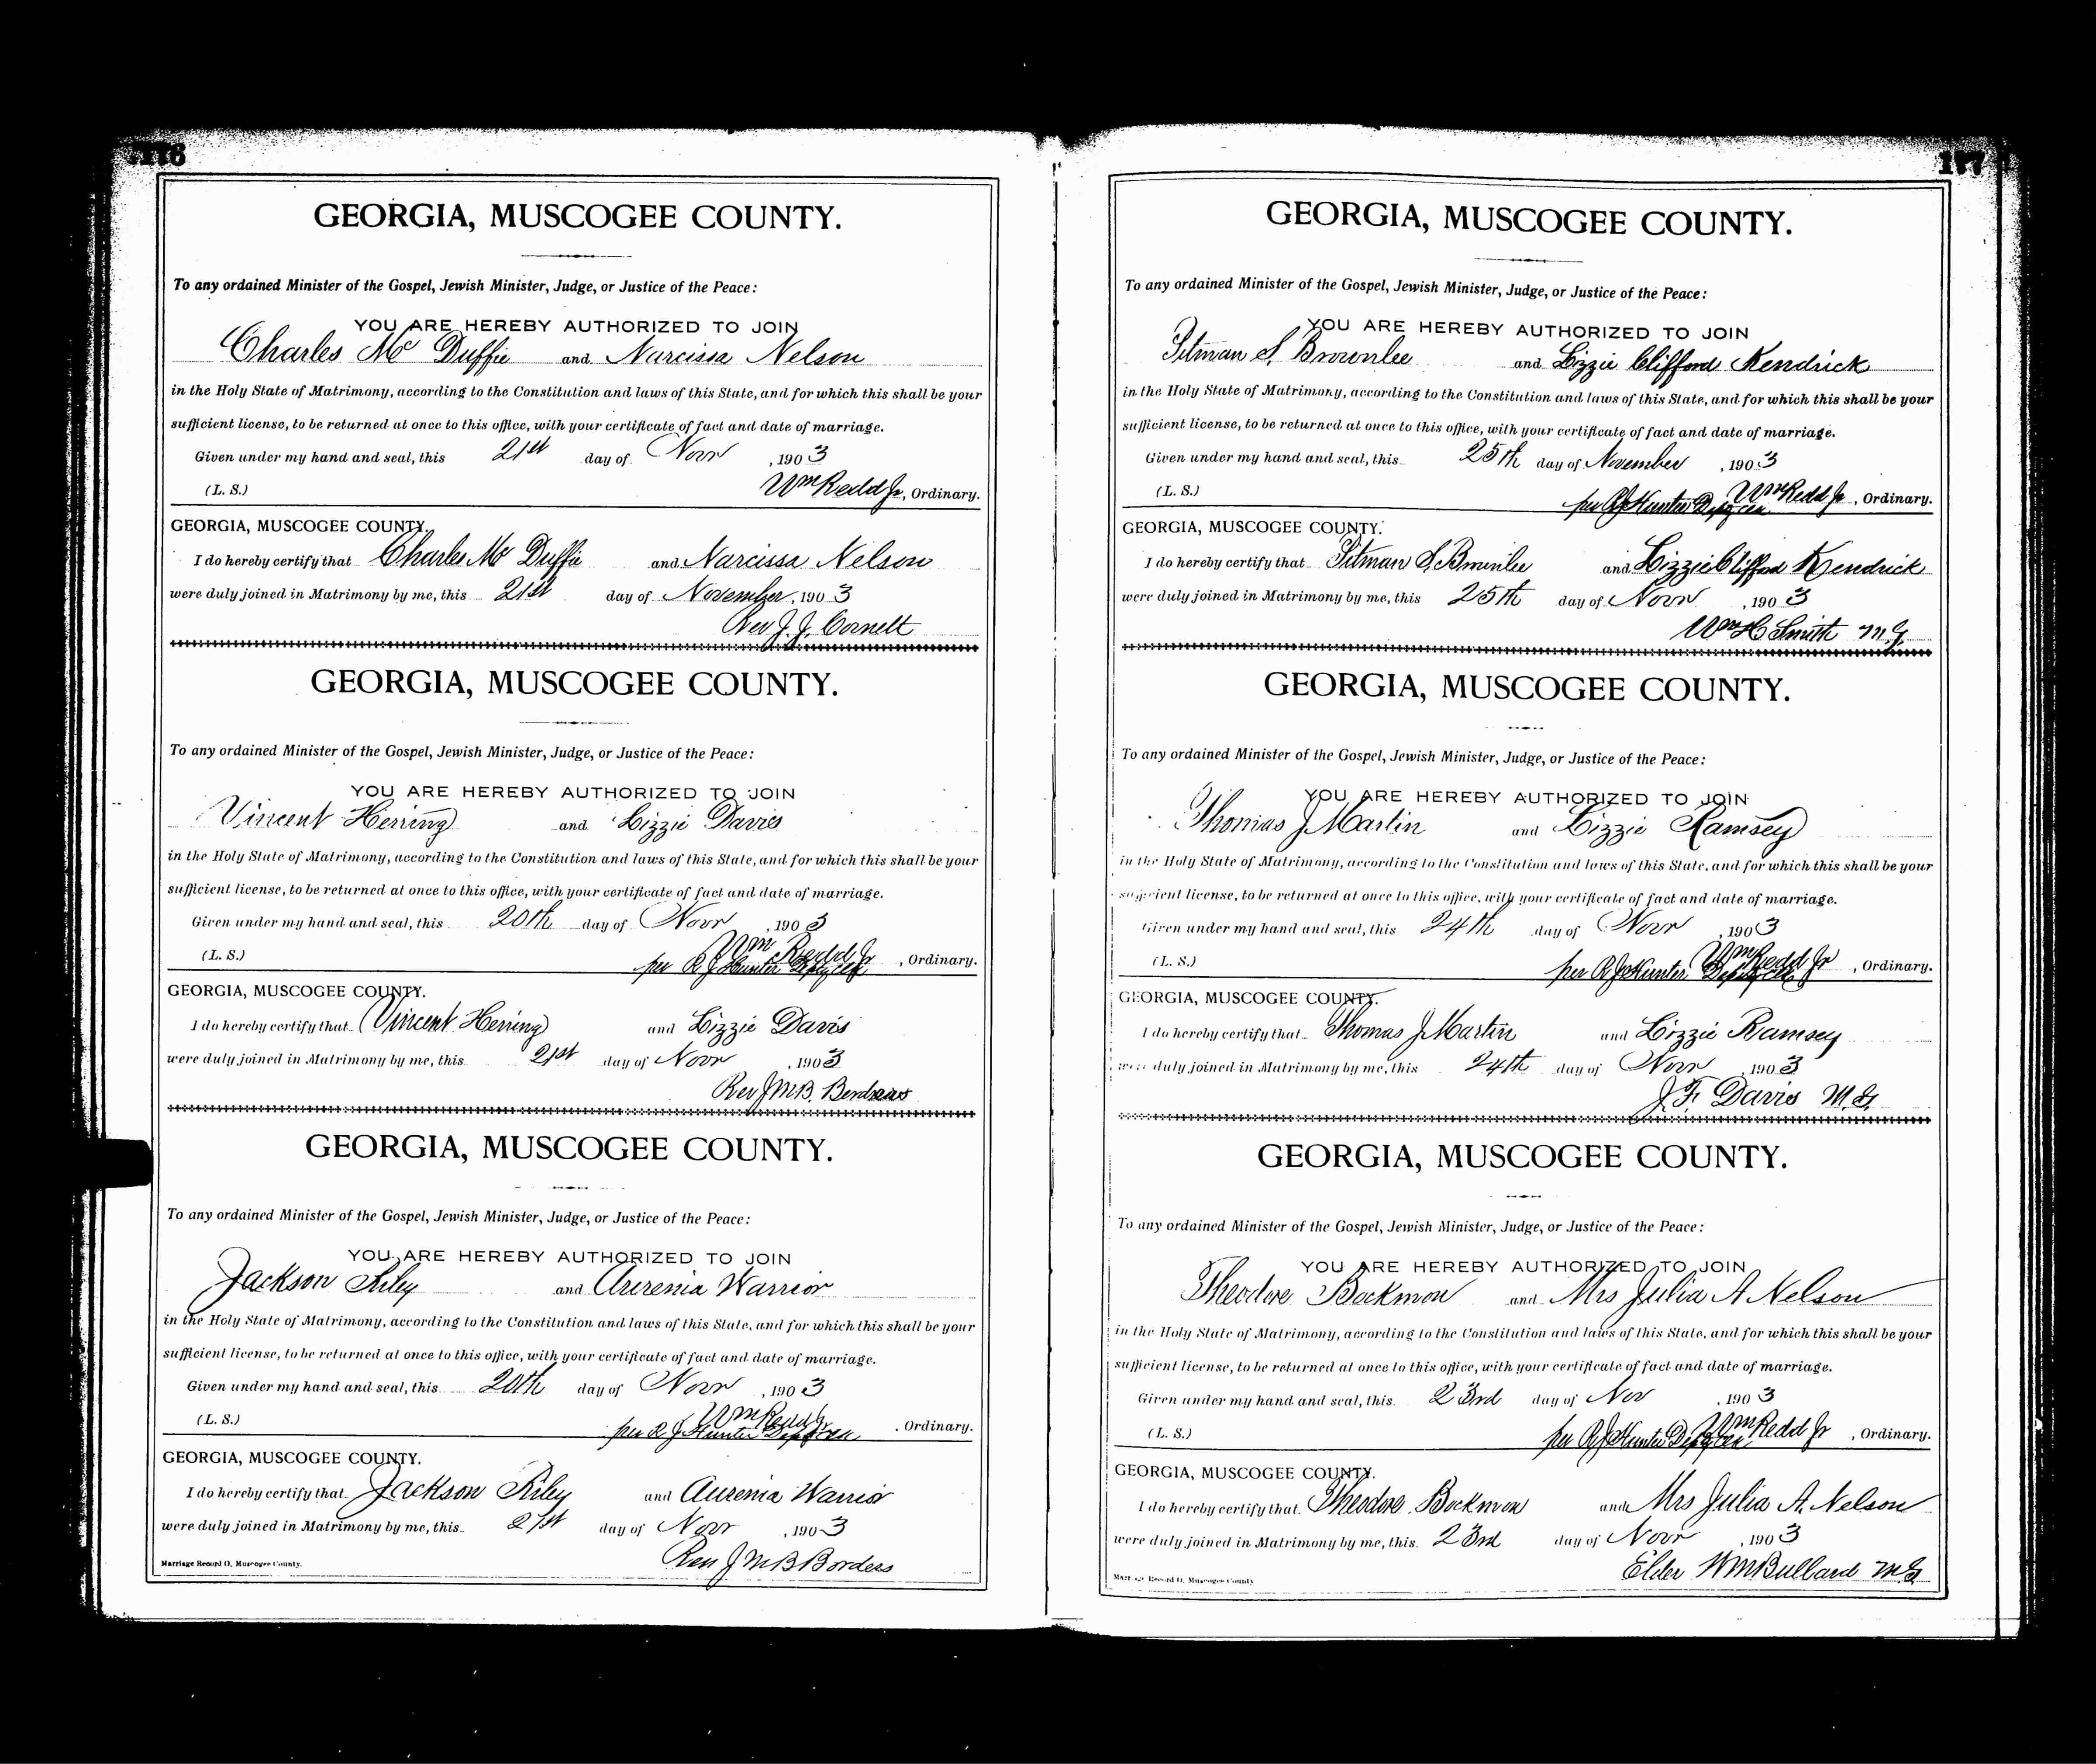 GEORGIA, MUSCOGEE COUNTY.
To any ordained Minister of the Gospel, Jewish Minister, Judge, or Justice of the Peace:
YOU ARE HEREBY AUTHORIZED TO JOIN
Charles Mc Duffie and Narcissa Nelson
in the Holy State of Matrimony, according to the Constitution and laws of this State, and for which this shall be your
sufficient license, to be returned at once to this office, with your certificate of fact and date of marriage.
Given under my hand and seal, this 21st day of Novr, 1903
(L. S.) Wm Redd Jr, Ordinary.
GEORGIA, MUSCOGEE COUNTY.
I do hereby certify that Charles Mc Duffie and Narcissa Nelson
were duly joined in Matrimony by me, this 21st day of November, 1903
Rev J. J. Cornett
GEORGIA, MUSCOGEE COUNTY.
To any ordained Minister of the Gospel, Jewish Minister, Judge, or Justice of the Peace:
YOU ARE HEREBY AUTHORIZED TO JOIN
Vincent Herring and Lizzie Davis
in the Holy State of Matrimony, according to the Constitution and laws of this State, and for which this shall be your
sufficient license, to be returned at once to this office, with your certificate of fact and date of marriage.
Given under my hand and seal, this 20th day of Novr, 1903
Wm Redd Jr
(L. S.) per R J Hunter, Ordinary.
GEORGIA, MUSCOGEE COUNTY.
I do hereby certify that Vincent Herring and Lizzie Davis
were duly joined in Matrimony by me, this 21st day of Novr, 1903
Rev J M B.
GEORGIA, MUSCOGEE COUNTY.
To any ordained Minister of the Gospel, Jewish Minister, Judge, or Justice of the Peace:
YOU ARE HEREBY AUTHORIZED TO JOIN
Jackson Riley and Aurenia Warrior
in the Holy State of Matrimony, according to the Constitution and laws of this State, and for which this shall be your
sufficient license, to be returned at once to this office, with your certificate of fact and date of marriage.
Given under my hand and seal, this 20th day of Novr, 1903
Wm Redd Jr
(L. S.) per R J Hunter, Ordinary.
GEORGIA, MUSCOGEE COUNTY.
I do hereby certify that Jackson Riley and Aurenia Warrior
were duly joined in Matrimony by me, this 21st day of Novr, 1903
Rev J M B Borders
Marriage Record O, Muscogee County.
177
GEORGIA, MUSCOGEE COUNTY.
To any ordained Minister of the Gospel, Jewish Minister, Judge, or Justice of the Peace:
YOU ARE HEREBY AUTHORIZED TO JOIN
Pitman S. Brownlee and Lizzie Clifford Kendrick
in the Holy State of Matrimony, according to the Constitution and laws of this State, and for which this shall be your
sufficient license, to be returned at once to this office, with your certificate of fact and date of marriage.
Given under my hand and seal, this 25th day of November, 1903
Wm Redd Jr
(L. S.) per R J Hunter, Ordinary.
GEORGIA, MUSCOGEE COUNTY.
I do hereby certify that Pitman S. Brownlee and Lizzie Clifford Kendrick
were duly joined in Matrimony by me, this 25th day of Novr, 1903
Wm H Smith M. G.
GEORGIA, MUSCOGEE COUNTY.
To any ordained Minister of the Gospel, Jewish Minister, Judge, or Justice of the Peace:
YOU ARE HEREBY AUTHORIZED TO JOIN
Thomas J Martin and Lizzie Ramsey
in the Holy State of Matrimony, according to the Constitution and laws of this State, and for which this shall be your
sufficient license, to be returned at once to this office, with your certificate of fact and date of marriage.
Given under my hand and seal, this 24th day of Novr, 1903
Wm Redd Jr
(L. S.) per R J Hunter, Ordinary.
GEORGIA, MUSCOGEE COUNTY.
I do hereby certify that Thomas J Martin and Lizzie Ramsey
were duly joined in Matrimony by me, this 24th day of Novr, 1903
J. F. Davis M. G.
GEORGIA, MUSCOGEE COUNTY.
To any ordained Minister of the Gospel, Jewish Minister, Judge, or Justice of the Peace:
YOU ARE HEREBY AUTHORIZED TO JOIN
Theodore Bockmon and Mrs Julia A Nelson
in the Holy State of Matrimony, according to the Constitution and laws of this State, and for which this shall be your
sufficient license, to be returned at once to this office, with your certificate of fact and date of marriage.
Given under my hand and seal, this 23rd day of Nov, 1903
Wm Redd Jr
(L. S.) per R J Hunter, Ordinary.
GEORGIA, MUSCOGEE COUNTY.
I do hereby certify that Theodore Bockmon and Mrs Julia A. Nelson
were duly joined in Matrimony by me, this 23rd day of Novr, 1903
Elder W M Bullard M G
Marriage Record O, Muscogee County